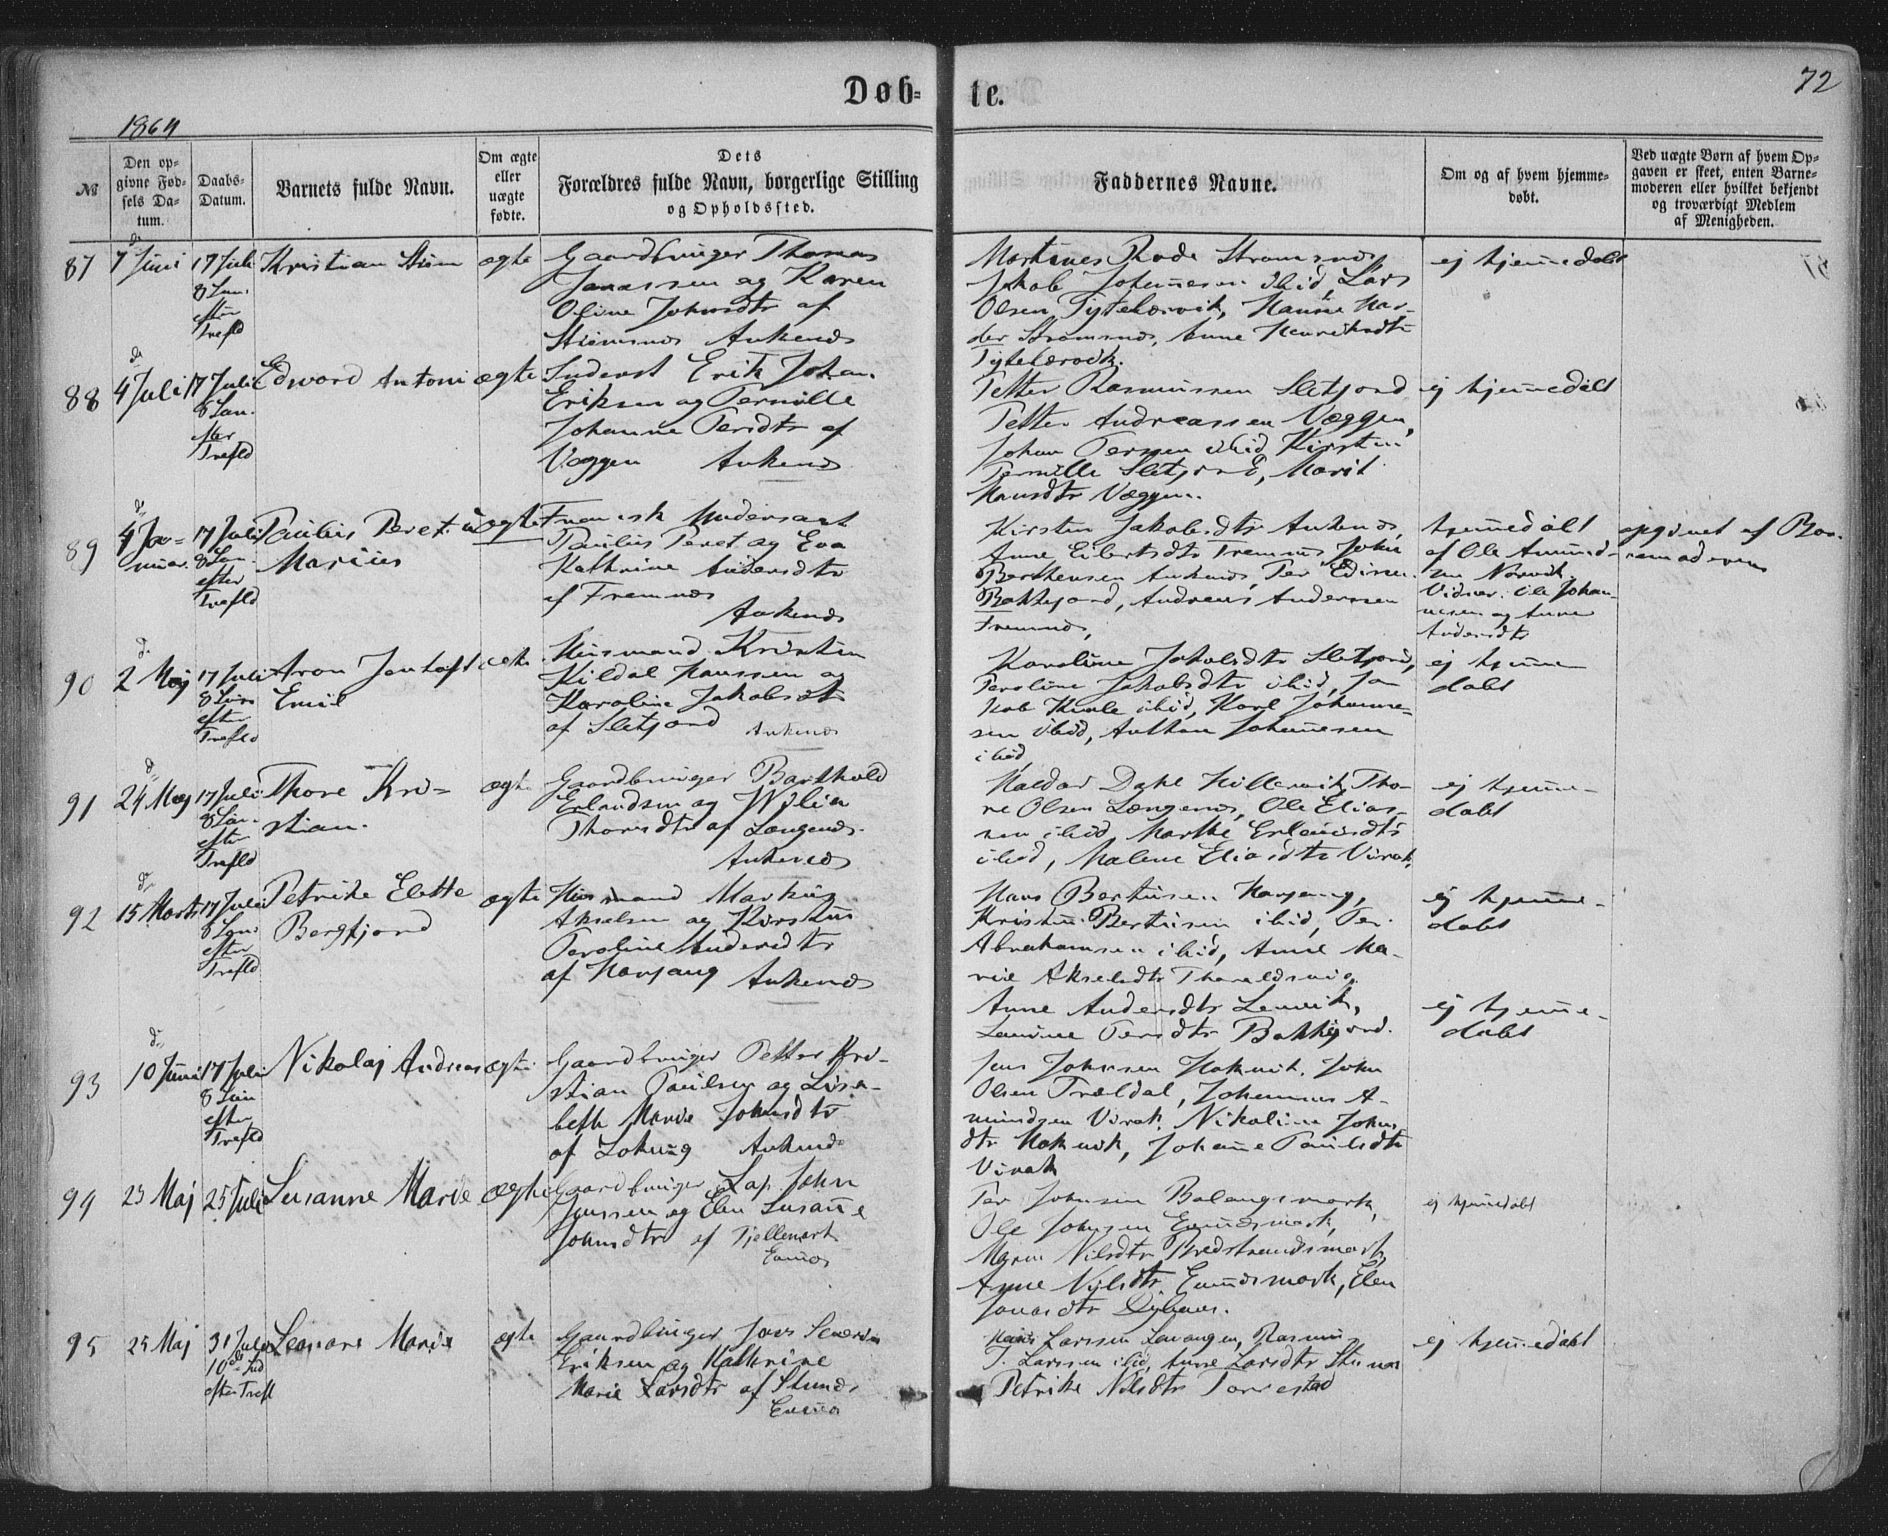 Døb-
te.
72
1864
№
Den op-
givne Fød-
sels Da-
tum.
Daabs-
Datum.
Barnets fulde Navn.
Om ægte
eller
uægte
fødte.
Dets
Forældres fulde Navn, borgerlige Stilling
og Opholdssted.
Faddernes Navne.
Om og af hvem hjemme-
døbt.
Ved uægte Børn af hvem Op-
gaven er skeet, enten Barne-
moderen eller hvilket bekjendt
og troværdigt Medlem
af Menigheden.
87
7 Juni
17 Juli
8 Søn.
efter
Trefld
Kristian
ægte
Gaardbruger Thomas
Jonassen og Karen
Oline Johnsdtr af
Ankenes
Martines Rode Stromsnes
Jakob Johannesen ibid, Lars
Olsen Tyttebærvik, Hanne Har-
der Stromsnes, Anne Henriksdtr
Tyttebærvik.
ej hjemmedøbt
88
4 Juli
17 Juli
8 Søn.
efter
Trefld
Edvard Antoni
ægte
Inderst Erik Johan
Eriksen og Pernille
Johanne Persdtr af
Væggen Ankenes
Petter Rasmussen Sletjord
Petter Andreassen Væggen,
Johan Persen ibid, Kirsten
Pernille Sletjord, Marit
Hansdtr Væggen.
ej hjemmedøbt
89
4 Ja-
nuar.
17 Juli
8 Søn.
efter
Trefld
Paulus Peret
Marius
uægte
Fransk Undersaat
Paulus Peret og Eva
Kathrine Andersdtr
af Fremnes
Ankenes
Kirsten Jakobsdtr Ankenes,
Anne Eilertsdtr Fremnes, John
Berthensen Ankenes, Per Edisen
Bakkejord, Andreas Andersen
Fremnes,
hjemmedøbt
af Ole Amund-
sen Norvik.
Vidner: Ole Johan-
nesen og Anne
Andersdtr
opgivet af Bar-
nemoderen
90
2 Maj
17 Juli
8 Søn
efter
Trefld
Aron Jentoft
Emil
ægte
Husmand Kristen
Kildal Hanssen og
Karoline Jakobsdtr
af Sletjord Ankenes
Karoline Jakobsdtr Sletjord,
Peroline Jakobsdtr ibid, Ja-
kob ibid, Karl Johanne-
sen ibid, Anthon Johannesen
ibid
ej hjemme-
døbt
91
24 Maj
17 Juli
8 Søn.
efter
Trefld
Thore Kri-
stian.
ægte
Gaardbruger Barthold
Erlandsen og
Thoresdtr af Længenes.
Ankenes
Haldor Dahl Hillervik, Tho-
re Olsen Længenes, Ole Elias-
sen ibid, Marthe Erlandsdtr
ibid, Malene Eliasdtr Virak.
ej hjemme-
døbt
92
15 Marts
17 Juli
8 Søn.
efter
Trefld
Petrike Elette
Bergfjord
ægte
Husmand Markus
Akselsen og Kirsten
Peroline Andersdtr
af Herjang Ankenes
Hans Bertheusen Herjang,
Kristen Bertheusen ibid, Per
Abrahamsen ibid, Anne Ma-
rie Akselsdtr Tharaldsvig.
Anne Andersdtr Lenvik,
Lavine Persdtr Bakkejord.
ej hjemme-
døbt
ej hjemme-
døbt
93
10 Juni
17 Juli
8 Søn
efter
Trefld
Nikolaj Andreas
ægte
Gaardbruger Petter Kri-
stian Paulsen og Lisa-
beth Marie Johnsdtr
af Ankenes
Jens Johnsen Hakvik. John
Olsen Trældal, Johannes A-
mundsen Virak. Nikoline Johns
dtr Hakvik, Johanne Paulsdtr
Virak
94
23 Maj
25 Juli
Susanne Marie
ægte
Gaardbruger Lap. John
Jonssen og Elen Susanne
Johnsdtr af Fjellmark
Evenes
Per Johnsen Balangsmark,
Ole Johnsen Evenesmark,
Maren Nilsdtr Bredstrandsmark
Anne Nilsdtr Evenesmark, Elen
Jonasdtr
ej hjemmedøbt
95
25 Maj
31 Juli
10de Søn
efter Trefl
Leonore Marie
ægte
Gaardbruger Jens Severin
Eriksen og Kathrine
Marie Larsdtr af
Evenes
Hans Larssen Lavangen, Rasmus
J. Larssen ibid, Anne Larsdtr
Petrike Nilsdtr Torrestad
ej hjemmedøbt